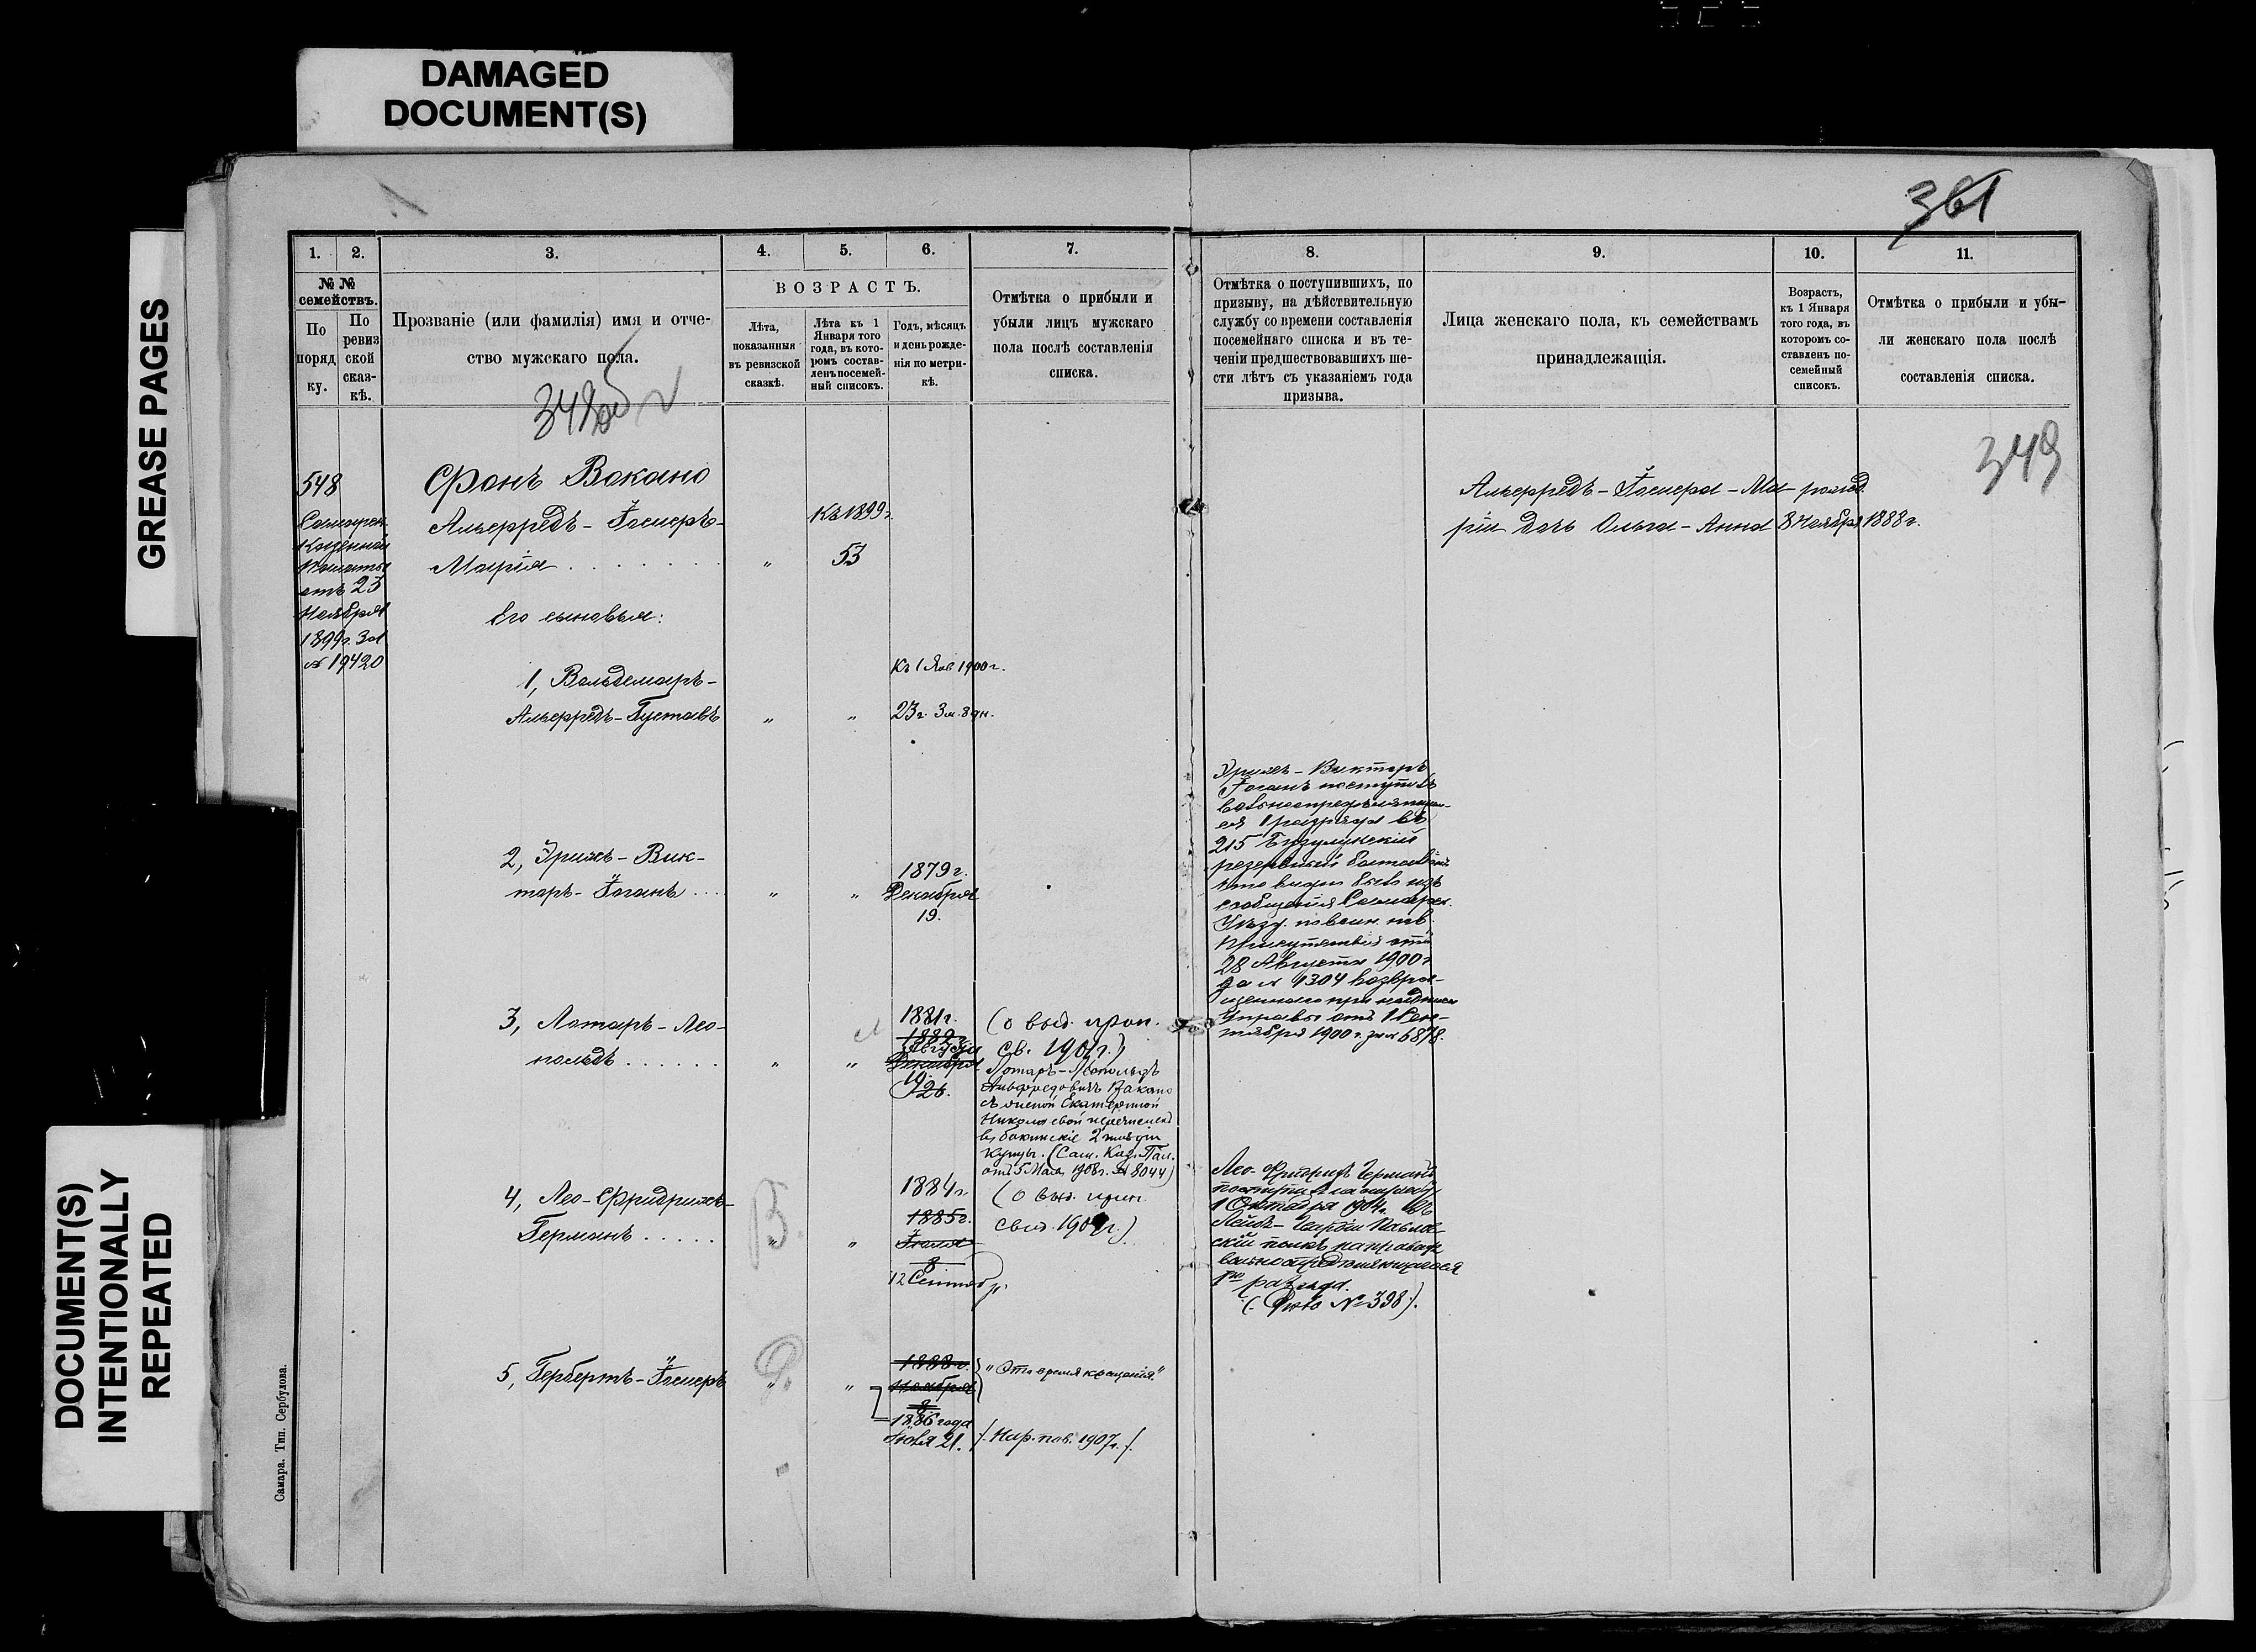 DAMAGED
DOCUMENT(S)
GREASE PAGES
DOCUMENT(S)
INTENTIONALLY
REPEATED
Самара. Тип. Сербулова.
361
1.
2.
3.
4.
5.
6.
7.
№ №
семействъ.
По
поряд
ку.
По
ревиз
ской
сказ-
кѣ.
Прозваніе (или фамилія) имя и отче-
ство мужскаго пола.
ВОЗРАСТЪ.
Лѣта,
показанныя
въ ревизской
сказкѣ.
Лѣта къ 1
Января того
года, въ кото-
ромъ состав-
ленъ посемей-
ный списокъ.
Годъ, мѣсяцъ
и день рожде-
нія по метри-
кѣ.
Отмѣтка о прибыли и
убыли лицъ мужскаго
пола послѣ составленія
списка.
348об
548
Самарск.
Казенной
Палаты
отъ 23
Ноября
1899г. за
№ 19420
Фонъ Вакано
Альфредъ-Іосифъ-
Марія
Къ 1899г.
„
53
Его сыновья:
1, Вольдемаръ-
Альфредъ-Густавъ
„
„
Къ 1 Янв 1900г.
23г. 3м. 8дн.
2, Эрихъ-Вик-
торъ-Іоганъ
„
„
1879г.
Декабря
19.
3, Лотаръ-Лео-
польдъ
„
„
1881г.
1882г.
Августа
Декабря
19.
26.
(о выд. прип.
св. 1902г.)
Лотаръ-Леопольдъ
Альфредовичъ Вакано
съ женой Екатериной
Николаевой перечислены
въ бакинскіе 2 гильдіи
купцы. (Сам. Каз. Пал.
отъ 5 Мая 1908г. № 8044)
4, Лео-Фридрихъ-
Германъ
В.
„
„
1884г.
1885г.
Іюля
8
12 Сентябр.
(о выд. прип.
свид. 1904г.)
5, Гербертъ-Іосифъ
„
„
1888г.
Ноября
8
1886 года
Іюля 21.
„Это время крещенія“
/. Нар. пов. 1907г. /.
8.
9.
10.
11.
Отмѣтка о поступившихъ, по
призыву, на дѣйствительную
службу со времени составленія
посемейнаго списка и въ те-
ченіи предшествовавшихъ ше-
сти лѣтъ съ указаніемъ года
призыва.
Лица женскаго пола, къ семействамъ
принадлежащія.
Возрастъ,
къ 1 Января
того года, въ
которомъ со-
ставленъ по-
семейный
списокъ.
Отмѣтка о прибыли и убы-
ли женскаго пола послѣ
составленія списка.
349
Альфредъ-Іосифа-Ма-
ріи дочь Ольга-Анна
рожд.
8 Ноября 1888г.
Эрихъ-Викторъ
Іоганъ поступилъ
вольноопредѣляющим-
ся 1 разряда въ
215 Бузулукскій
резервный баталіонъ
что видно было изъ
сообщенія Самарск.
Уѣзд. по воин. пов.
Присутствія отъ
28 Августа 1900г.
за № 1304 возвра-
щеннаго при надписи
Управы отъ 1 Сен-
тября 1900 г. за № 6878.
Лео-Фридрихъ Германъ
поступилъ на службу
1 Октября 1904г. въ
Лейбъ-Гвардіи Павлов-
скій полкъ на правахъ
вольноопредѣляющагося
1го разряда.
(Дѣло № 398).